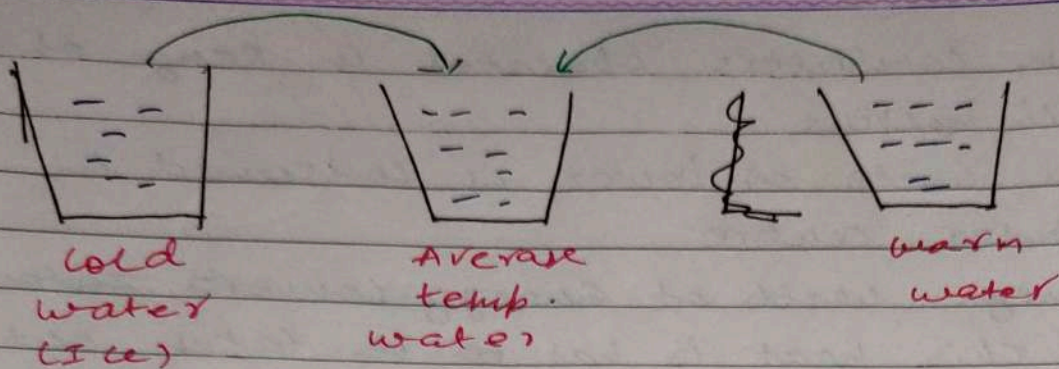 cold
water
(Ice)
Average
temp.
water
warm
water